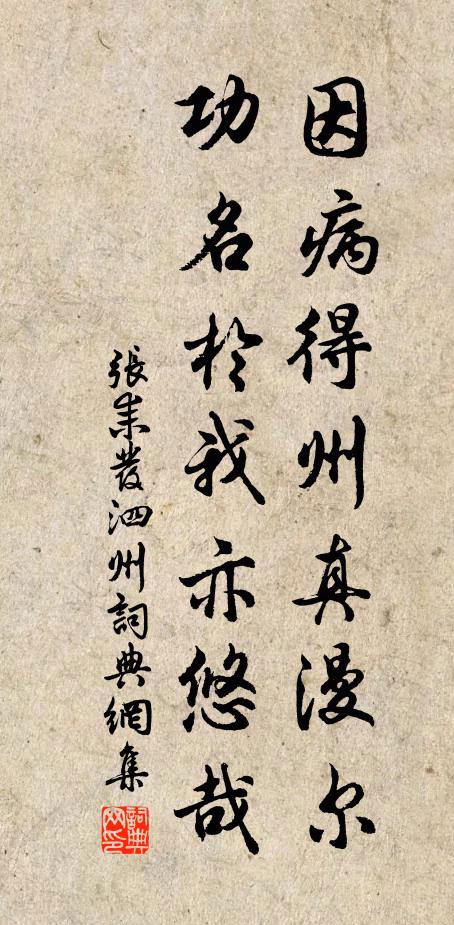 因病得州真漫尔
功名於我亦悠哉
張耒發泗州詞典網集
詞典網印